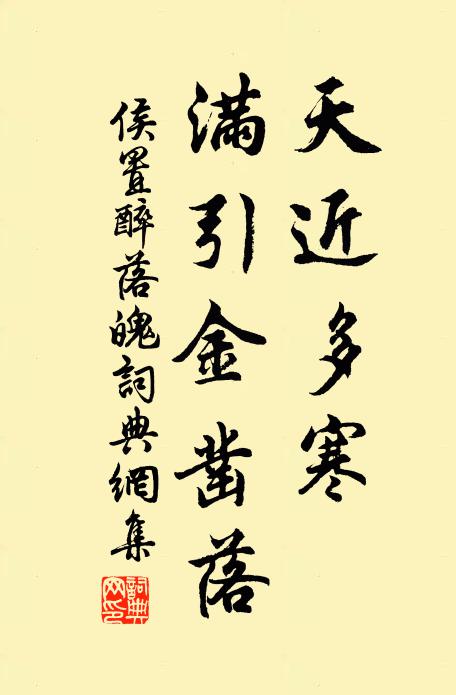 天近多寒
滿引金鑿落
侯置醉落魄詞典網集
詞典網印